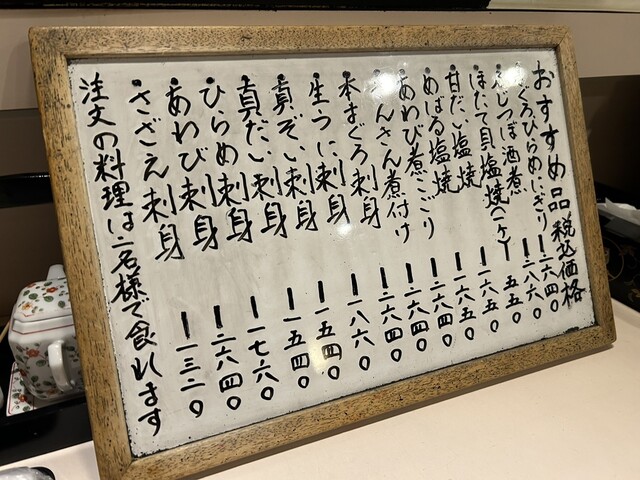 おすすめ品 税込価格
ぐろひらめにぎり ー二六四〇
じつぼ酒煮 ー二八六〇
ほたて貝塩焼(二ヶ) ー五五〇
甘だい塩焼 ー一六五〇
めばる塩焼 ー一六五〇
あわび煮こごり ー二六四〇
んさん煮付け ー二六四〇
本まぐろ刺身 ー二六四〇
生うに刺身 ー一八六〇
真ぞい刺身 ー一五四〇
真だい刺身 ー一五四〇
ひらめ刺身 ー一七六〇
あわび刺身 ー二六四〇
さざえ刺身 ー一三二〇
注文の料理は二名様で食れます